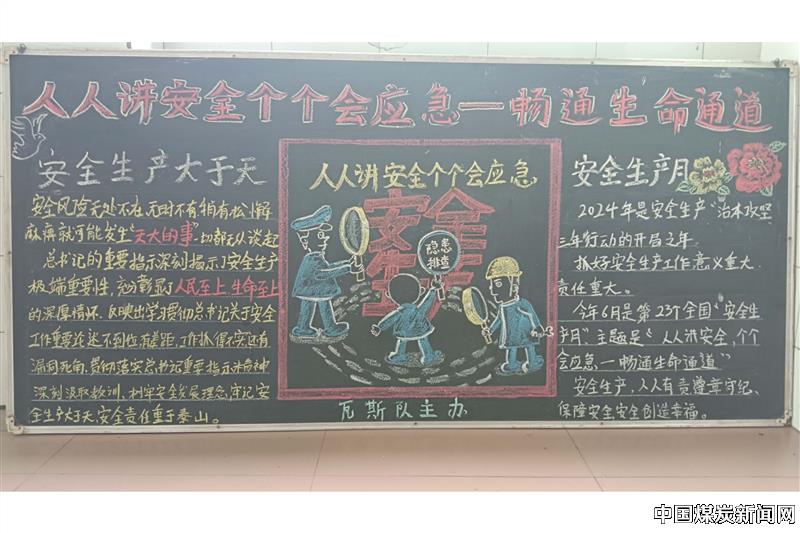 人人讲安全个个会应急—畅通生命通道
安全生产大于天
安全风险无处不在,无时不有,稍有松懈
麻痹就可能发生"天大的事"一切都无从谈起
总书记的重要指示深刻揭示了安全生产
极端重要性,充分彰显了人民至上,生命至上
的深厚情怀,反映出学习贯彻总书记关于安全
工作重要论述不到位有差距,工作抓得不实还有
漏洞死角,贯彻落实总书记重要指示精神
深刻汲取教训,树牢安全发展理念,守记安
全生产大于天,安全责任重于泰山。
人人讲安全个个会应急
安全
生产
隐患
排查
瓦斯队主办
安全生产月
2024年是安全生产"治本攻坚
三年行动的开局之年.
抓好安全生产工作意义重大.
责任重大。
今年6月是第23个全国"安全生
产月"主题是"人人讲安全,个个
会应急—畅通生命通道"
安全生产,人人有责遵章守纪、
保障安全安全创造幸福。
中国煤炭新闻网